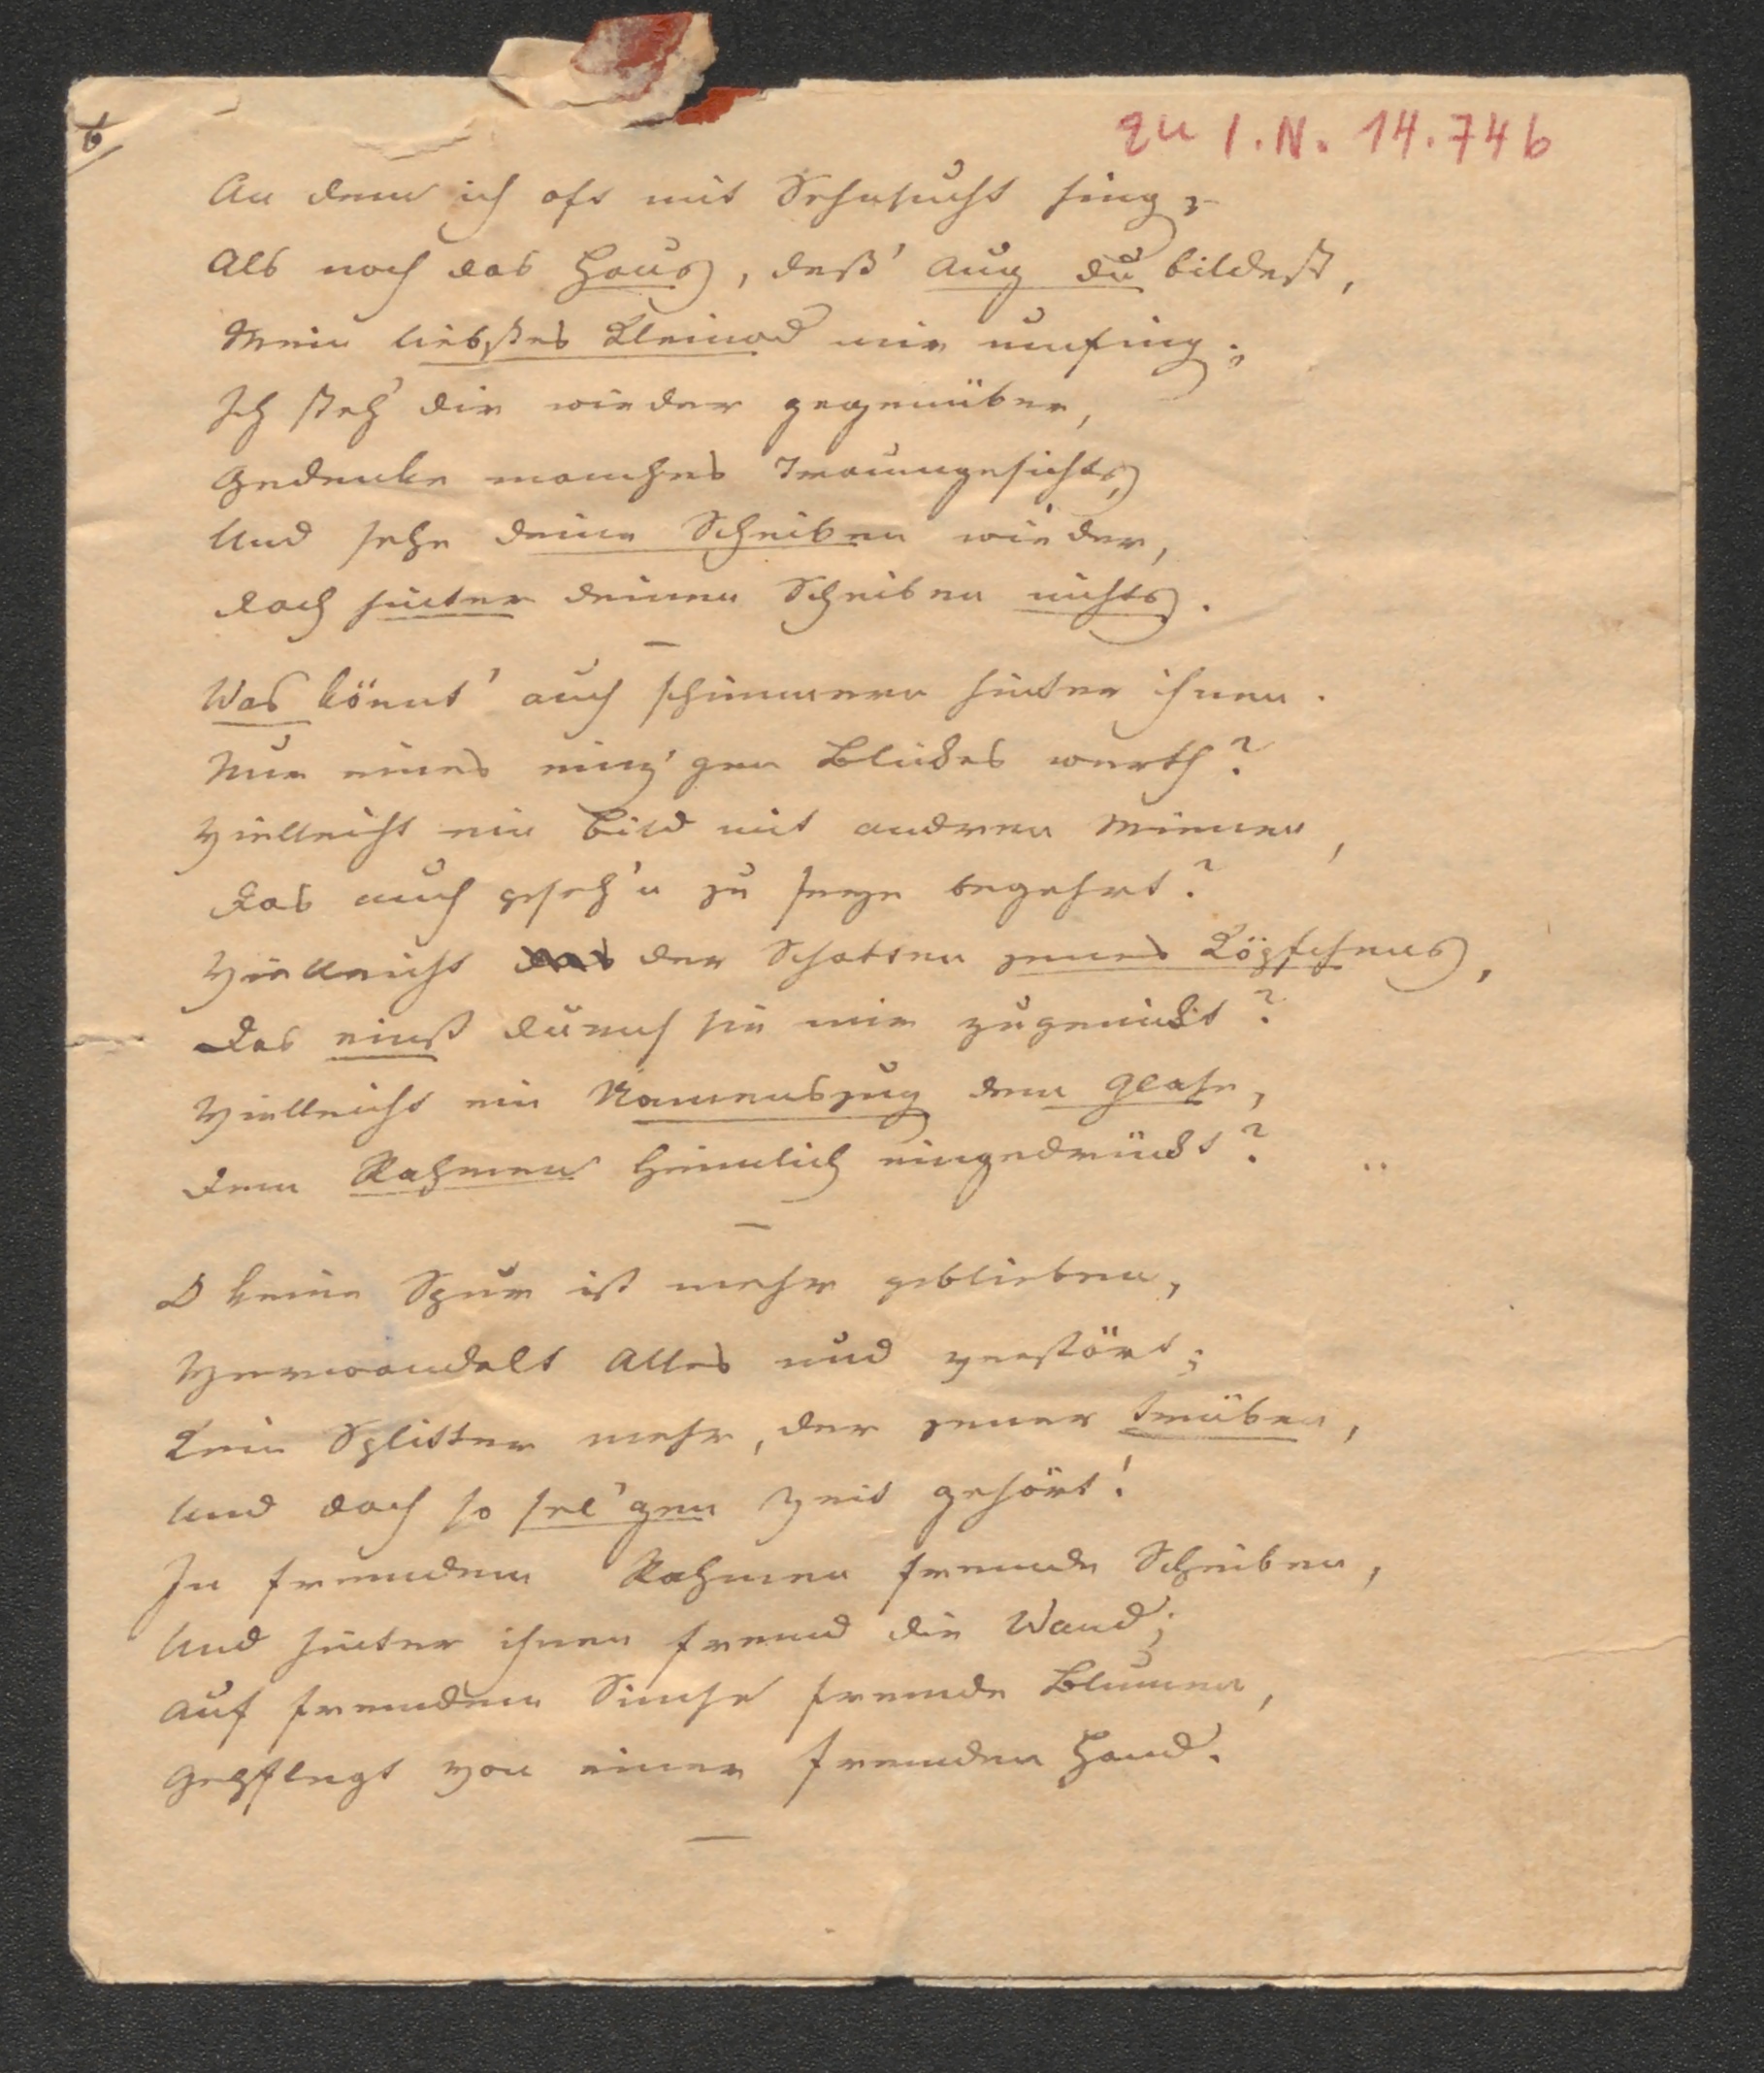 6
zu I.N. 14.746
An dem ich oft mit Sehnsucht hing,
Als noch das Haus, deß' Aug du bildest,
Mein liebstes Kleinod mir umfing;
Ich steh' dir wieder gegenüber,
Gedenke manches Traumgesichts,
Und sehe deine Scheiben wieder,
Doch hinter deinen Scheiben nichts.
—
Was könnt' auch schimmern hinter ihnen.
Nur eines einz'gen Blickes werth?
Vielleicht ein Bild mit andren Mienen,
Das auch geseh'n zu seyn begehrt?
Vielleicht das der Schatten jenes Köpfchens,
Das einst durch sie mir zugenickt?
Vielleicht ein Namenszug dem Glase,
Dem Rahmen heimlich eingedrückt?
—
O keine Spur ist mehr geblieben,
Verwandelt Alles und verstört;
Kein Splitter mehr, der jener trüben,
Und doch so sel'gen Zeit gehört!
In fremdem Rahmen fremde Scheiben,
Und hinter ihnen fremd die Wand;
Auf fremdem Simse fremde Blumen,
Gepflegt von einer fremden Hand.
—